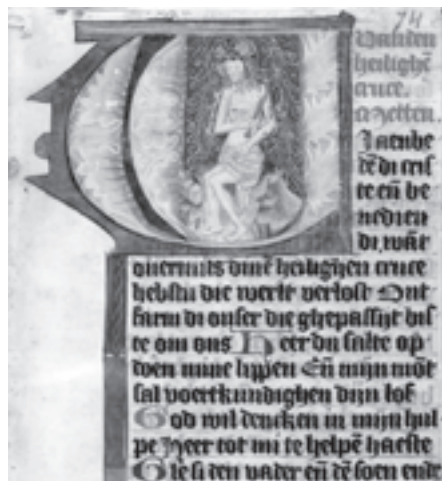 74
Vanden
heilighē
cruce.
Metten.
WI aenbe
dē di cris
te eñ be
nedien
di. wāt
ouermits dinē heilighen cruce
hebstu die werlt verlost Ont
farm di onser die ghepassijt bis
te om ons Heer du salte op
doen mine lippen Eñ mijn mōt
sal voertkundighen dijn lof
God wil dencken in mijn hul
pe Heer tot mi te helpē haeste
Gle si den vader eñ dē soen ende